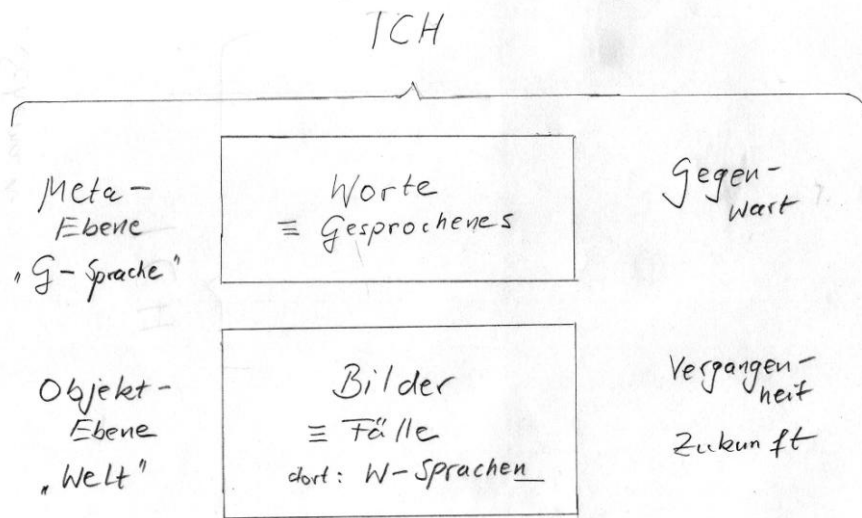 ICH
Meta-
Ebene
„G-Sprache"
Worte
≡ Gesprochenes
Gegen-
wart
Objekt-
Ebene
„Welt"
Bilder
≡ Fälle
dort: W-Sprachen
Vergangen-
heit
Zukunft